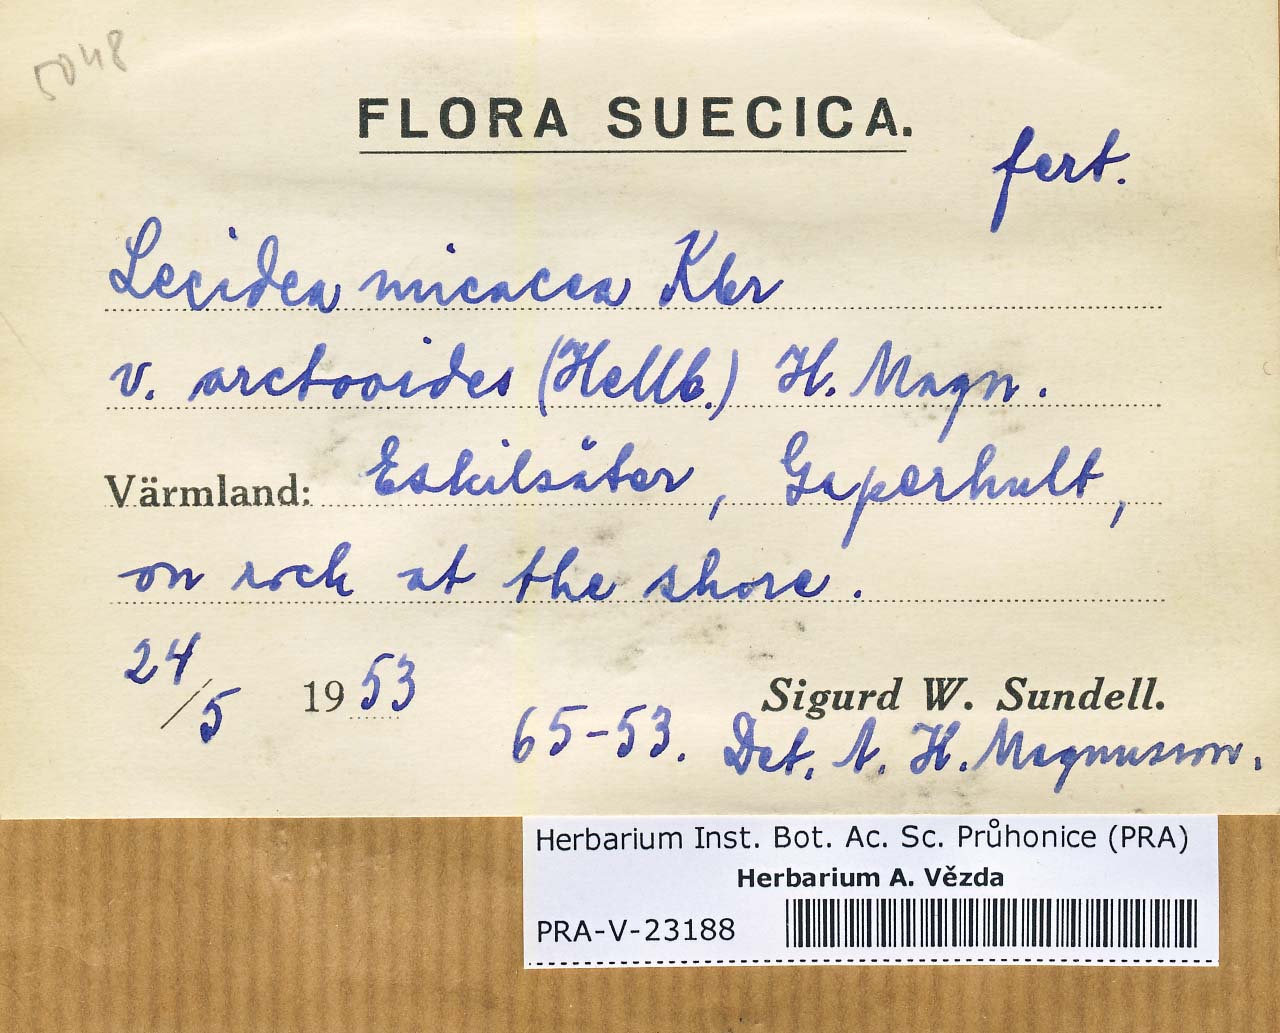 5048
FLORA SUECICA.
fert.
Lecidea micacea Kbr
v. arctooides (Hellb.) H. Magn.
Värmland: Eskilsäter, Gaperhult,
on rock at the shore.
24/5 1953
Sigurd W. Sundell.
65-53. Det. A. H. Magnusson.
Herbarium Inst. Bot. Ac. Sc. Průhonice (PRA)
Herbarium A. Vězda
PRA-V-23188